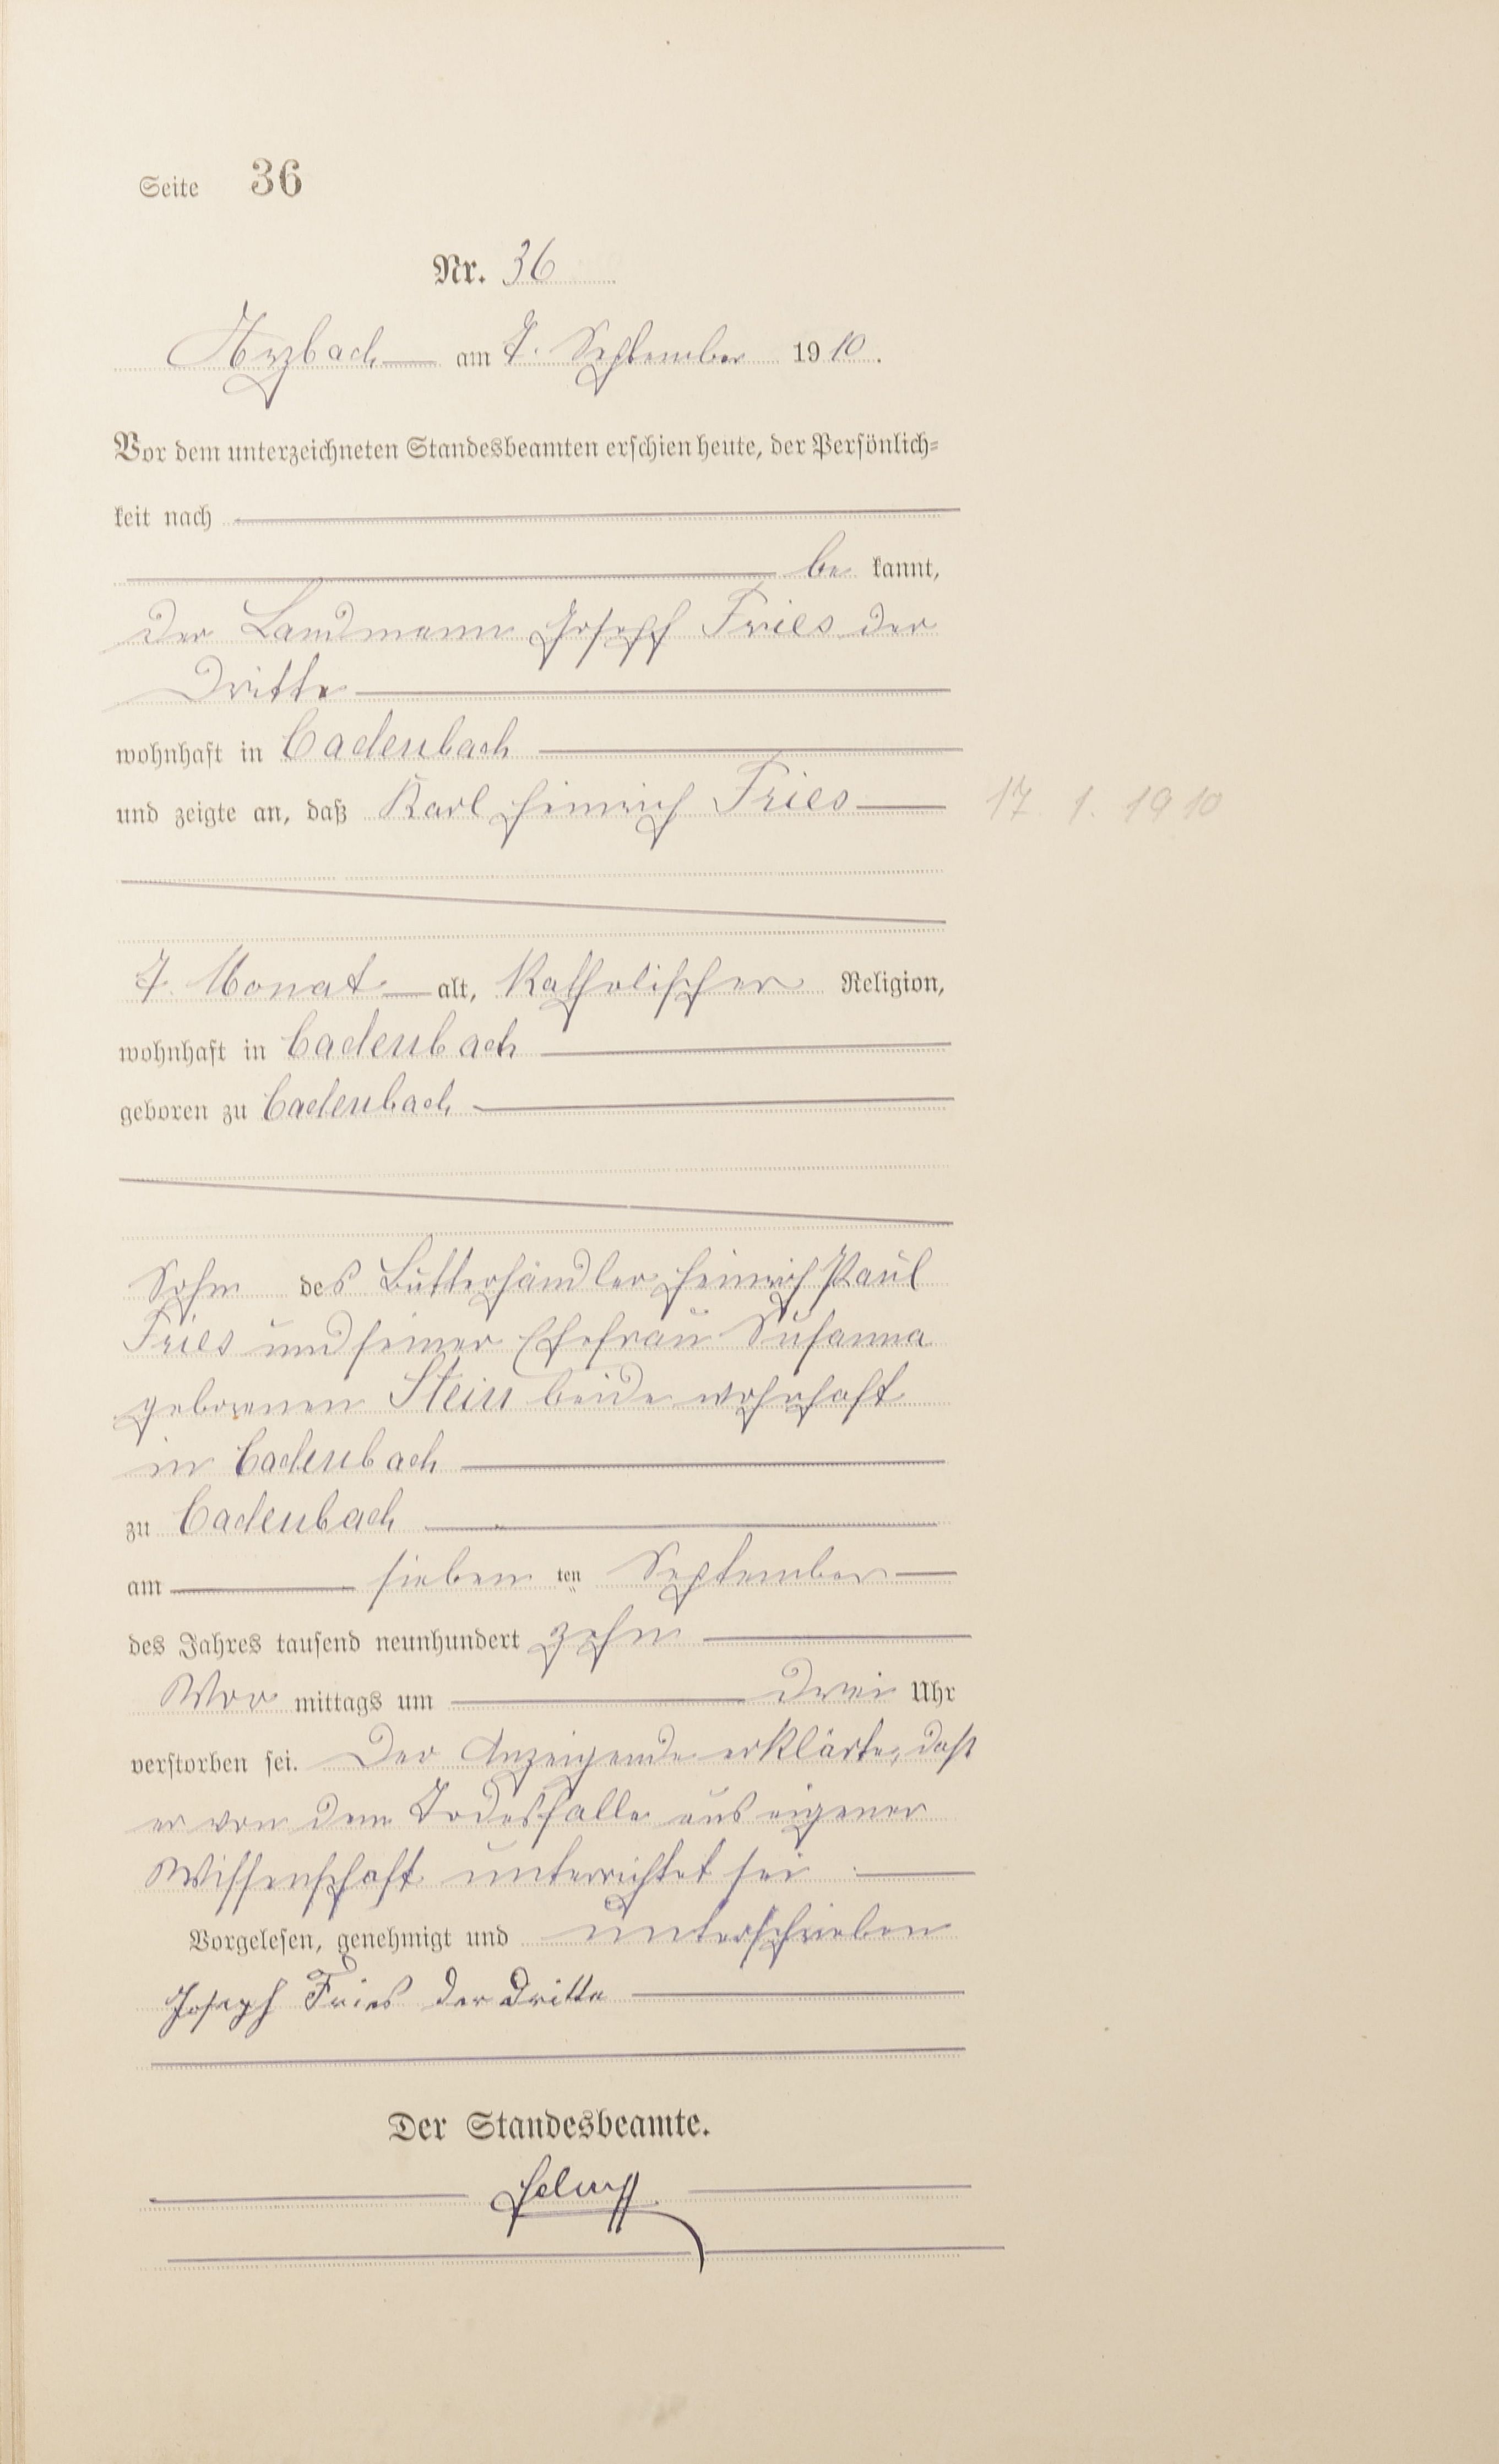 Seite 36
Nr. 36
Arzbach am 7. September 1910.
Vor dem unterzeichneten Standesbeamten erschien heute, der Persönlich-
keit nach
be kannt,
der Landmann Joseph Fries der
Dritte
wohnhaft in Cadenbach
und zeigte an, daß Karl Heinrich Fries
17. 1. 1910
7 Monat alt, Katholischer Religion,
wohnhaft in Cadenbach
geboren zu Cadenbach
Sohn des Butterhändler Heinrich Paul
Fries und seiner Ehefrau Susanna
geborenen Stein beide wohnhaft
in Cadenbach
zu Cadenbach
am sieben ten September
des Jahres tausend neunhundert zehn
Vor mittags um drei Uhr
verstorben sei. Der Anzeigende erklärte, daß
er von dem Todesfalle aus eigener
Wissenschaft unterrichtet sei
Vorgelesen, genehmigt und unterschrieben
Joseph Fries der Dritte
Der Standesbeamte.